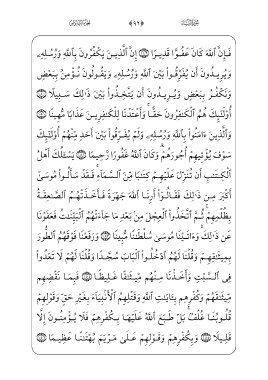 فَإِنَّ ٱللَّهَ كَانَ عَفُوًّا قَدِيرًا ١٤٩ إِنَّ ٱلَّذِينَ يَكْفُرُونَ بِٱللَّهِ وَرُسُلِهِۦ
وَيُرِيدُونَ أَن يُفَرِّقُوا۟ بَيْنَ ٱللَّهِ وَرُسُلِهِۦ وَيَقُولُونَ نُؤْمِنُ بِبَعْضٍ
وَنَكْفُرُ بِبَعْضٍ وَيُرِيدُونَ أَن يَتَّخِذُوا۟ بَيْنَ ذَٰلِكَ سَبِيلًا ١٥٠
أُو۟لَٰٓئِكَ هُمُ ٱلْكَٰفِرُونَ حَقًّا وَأَعْتَدْنَا لِلْكَٰفِرِينَ عَذَابًا مُّهِينًا ١٥١
وَٱلَّذِينَ ءَامَنُوا۟ بِٱللَّهِ وَرُسُلِهِۦ وَلَمْ يُفَرِّقُوا۟ بَيْنَ أَحَدٍ مِّنْهُمْ أُو۟لَٰٓئِكَ
سَوْفَ يُؤْتِيهِمْ أُجُورَهُمْ وَكَانَ ٱللَّهُ غَفُورًا رَّحِيمًا ١٥٢ يَسْـَٔلُكَ أَهْلُ
ٱلْكِتَٰبِ أَن تُنَزِّلَ عَلَيْهِمْ كِتَٰبًا مِّنَ ٱلسَّمَآءِ فَقَدْ سَأَلُوا۟ مُوسَىٰٓ
أَكْبَرَ مِن ذَٰلِكَ فَقَالُوٓا۟ أَرِنَا ٱللَّهَ جَهْرَةً فَأَخَذَتْهُمُ ٱلصَّٰعِقَةُ
بِظُلْمِهِمْ ثُمَّ ٱتَّخَذُوا۟ ٱلْعِجْلَ مِنۢ بَعْدِ مَا جَآءَتْهُمُ ٱلْبَيِّنَٰتُ فَعَفَوْنَا
عَن ذَٰلِكَ وَءَاتَيْنَا مُوسَىٰ سُلْطَٰنًا مُّبِينًا ١٥٣ وَرَفَعْنَا فَوْقَهُمُ ٱلطُّورَ
بِمِيثَٰقِهِمْ وَقُلْنَا لَهُمُ ٱدْخُلُوا۟ ٱلْبَابَ سُجَّدًا وَقُلْنَا لَهُمْ لَا تَعْدُوا۟
فِى ٱلسَّبْتِ وَأَخَذْنَا مِنْهُم مِّيثَٰقًا غَلِيظًا ١٥٤ فَبِمَا نَقْضِهِم
مِّيثَٰقَهُمْ وَكُفْرِهِم بِـَٔايَٰتِ ٱللَّهِ وَقَتْلِهِمُ ٱلْأَنۢبِيَآءَ بِغَيْرِ حَقٍّ وَقَوْلِهِمْ
قُلُوبُنَا غُلْفٌۢ بَلْ طَبَعَ ٱللَّهُ عَلَيْهَا بِكُفْرِهِمْ فَلَا يُؤْمِنُونَ إِلَّا
قَلِيلًا ١٥٥ وَبِكُفْرِهِمْ وَقَوْلِهِمْ عَلَىٰ مَرْيَمَ بُهْتَٰنًا عَظِيمًا ١٥٦